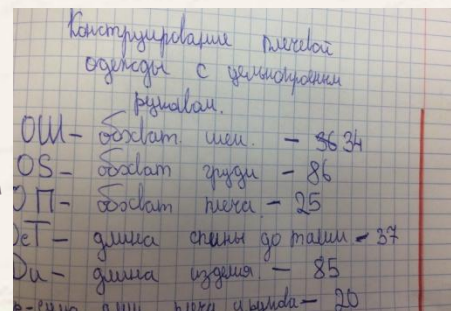 Конструирование плечевой
одежды с цельнокроеным
рукавом.
ОШ – обхват. шеи. – 34
OS – обхват груди – 86
ОП – обхват плеча – 25
ДсТ – длина спины до талии – 37
Ди – длина изделия – 85
плеча – 20